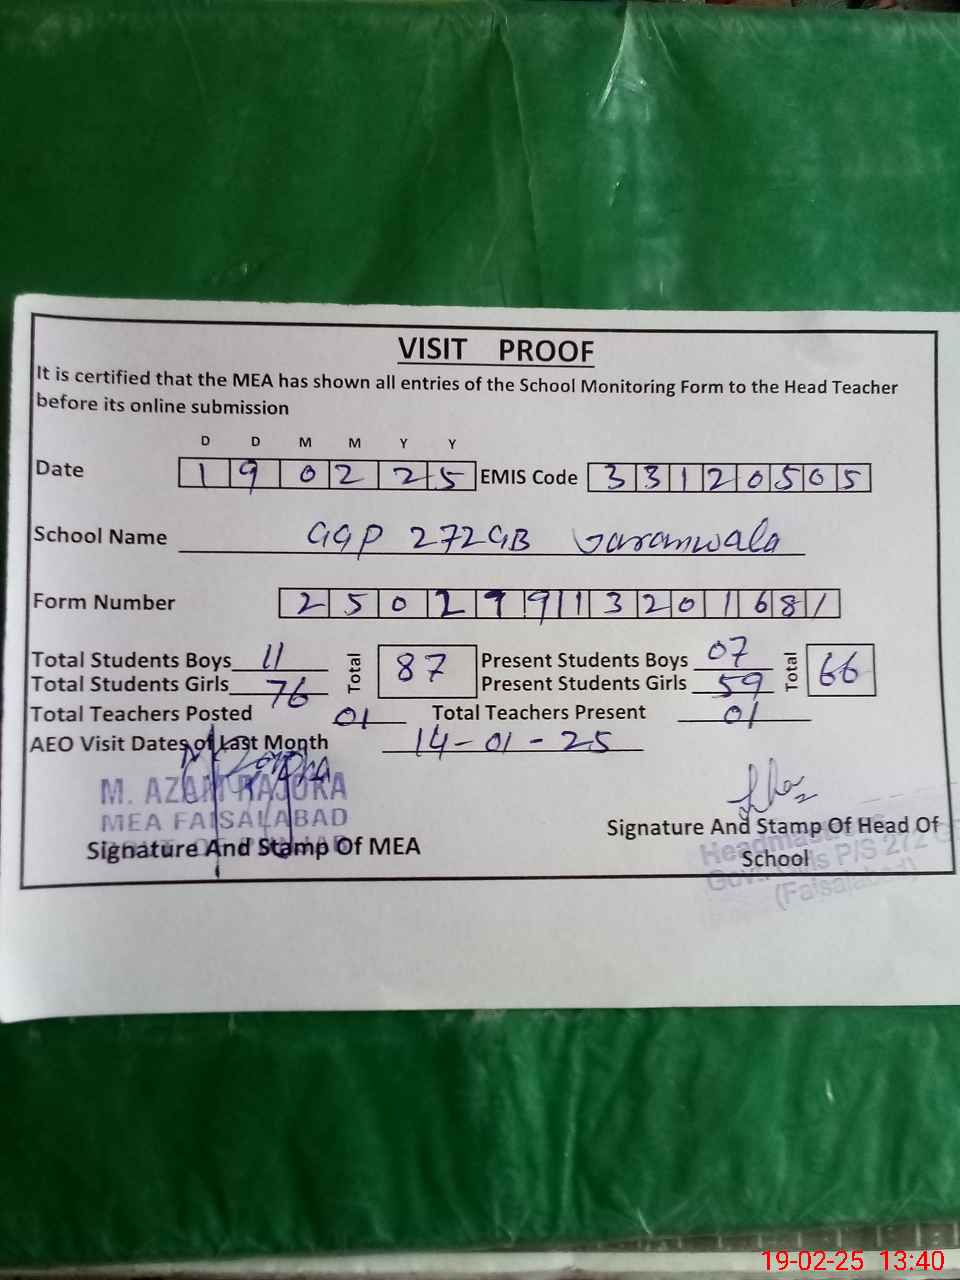 VISIT PROOF
It is certified that the MEA has shown all entries of the School Monitoring Form to the Head Teacher
before its online submission
D D M M Y Y
Date 1 9 0 2 2 5 EMIS Code 3 3 1 2 0 5 0 5
School Name GGP 272GB Garanwala
Form Number 2 5 0 2 9 9 1 3 2 0 1 6 8 1
Total Students Boys 11 Total 87 Present Students Boys 07 Total 66
Total Students Girls 76 Present Students Girls 59
Total Teachers Posted 01 Total Teachers Present 01
AEO Visit Dates of Last Month 14-01-25
M. AZAM RAJOKA
MEA FAISALABAD
Signature And Stamp Of MEA
Signature And Stamp Of Head Of
School
Headmistress
Govt. Girls P/S 272 G
(Faisalabad)
19-02-25 13:40